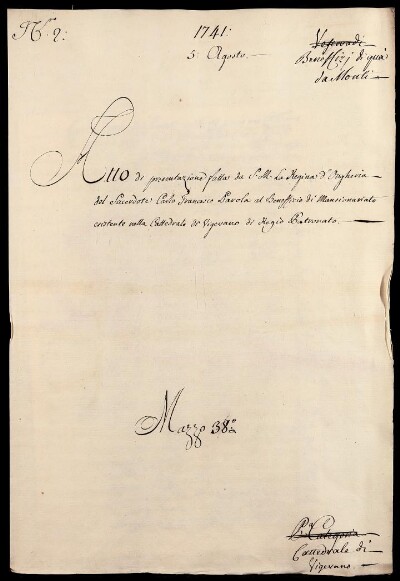 N.º 2:
1741:
5. Agosto.
Vescovadi
Beneffizj di quà
da Monti
Atto di presentazione fatta da S. M. la Regina d'Ungheria
del Sacerdote Carlo Francesco Parola al Beneffizio di Mansionariato
esistente nella Cattedrale di Vigevano di Regio Patronato.
Mazzo 38º
Cattedrale di
Vigevano